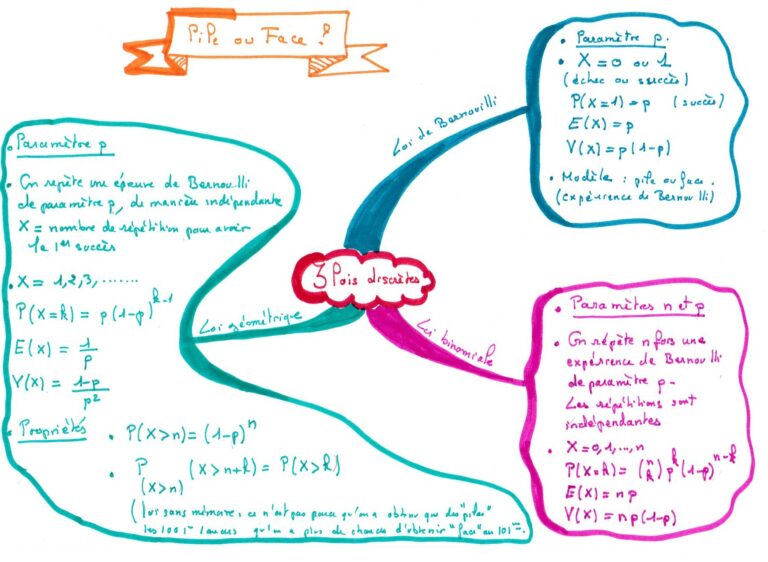 Pile ou Face ?
3 lois discrètes
Loi de Bernouilli
• Paramètre p.
• X = 0 ou 1
(échec ou succès)
P(X=1) = p (succès)
E(X) = p
V(X) = p(1-p)
• Modèle : pile ou face.
(expérience de Bernouilli)
Loi binomiale
• Paramètes n et p
• On répète n fois une
expérience de Bernouilli
de paramètre p.
Les répétitions sont
indépendantes
• X = 0,1,...,n
P(X=k) = (n k) p^k (1-p)^{n-k}
E(X) = np
V(X) = np(1-p)
Loi géométrique
• Paramètre p
• On répète une épreuve de Bernouilli
de paramètre p, de manière indépendante
X = nombre de répétition pour avoir
le 1er succès
• X = 1,2,3,.......
P(X=k) = p(1-p)^{k-1}
E(X) = 1/p
V(X) = 1-p/p²
• Propriétés • P(X>n) = (1-p)^n
• P (X>n+k) = P(X>k)
(X>n)
(loi sans mémoire : ce n'est pas parce qu'on a obtenu que des "piles"
les 100 1ers lancers qu'on a plus de chances d'obtenir "face" au 101ème.